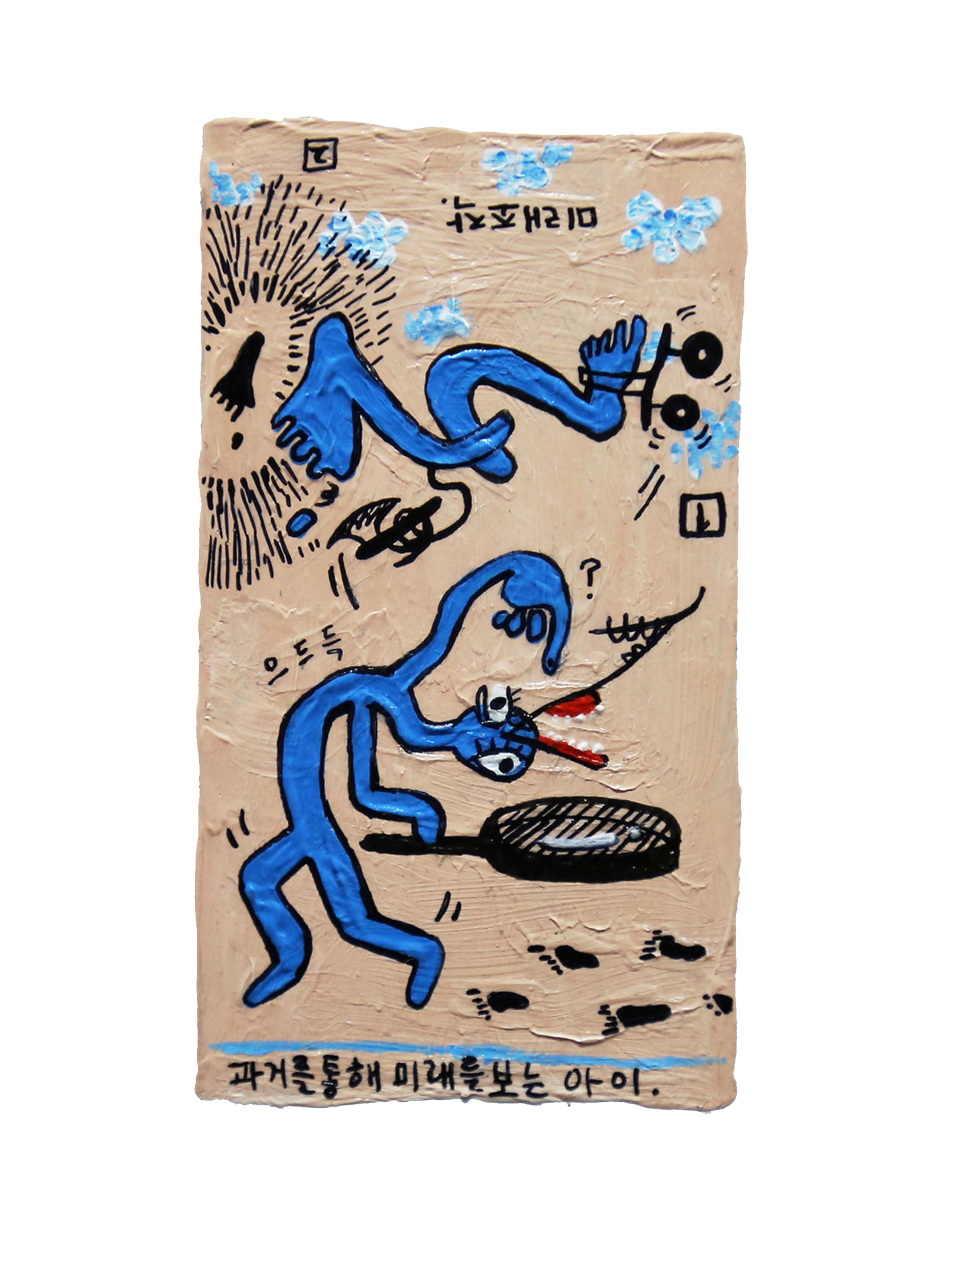 2
미래조작.
1
?
으드득
과거를통해 미래를보는 아이.